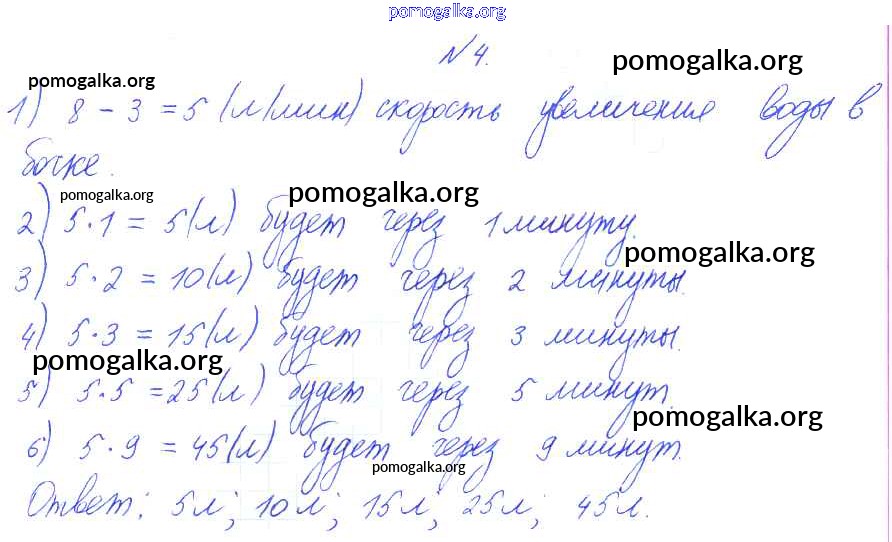 pomogalka.org
№ 4.
pomogalka.org
pomogalka.org
1) 8 - 3 = 5 (л/мин) скорость увеличения воды в
бочке.
pomogalka.org
pomogalka.org
2) 5 · 1 = 5 (л) будет через 1 минуту.
pomogalka.org
3) 5 · 2 = 10 (л) будет через 2 минуты.
4) 5 · 3 = 15 (л) будет через 3 минуты.
pomogalka.org
5) 5 · 5 = 25 (л) будет через 5 минут.
pomogalka.org
6) 5 · 9 = 45 (л) будет через 9 минут.
pomogalka.org
Ответ: 5 л; 10 л; 15 л; 25 л; 45 л.